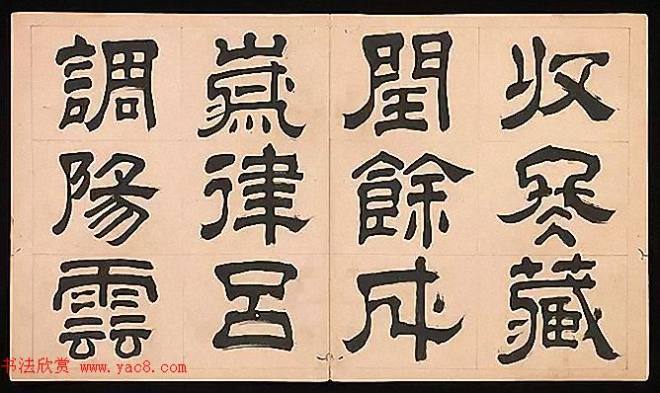 收冬藏
閏餘成
歲律呂
調陽雲
书法欣赏 www.yac8.com